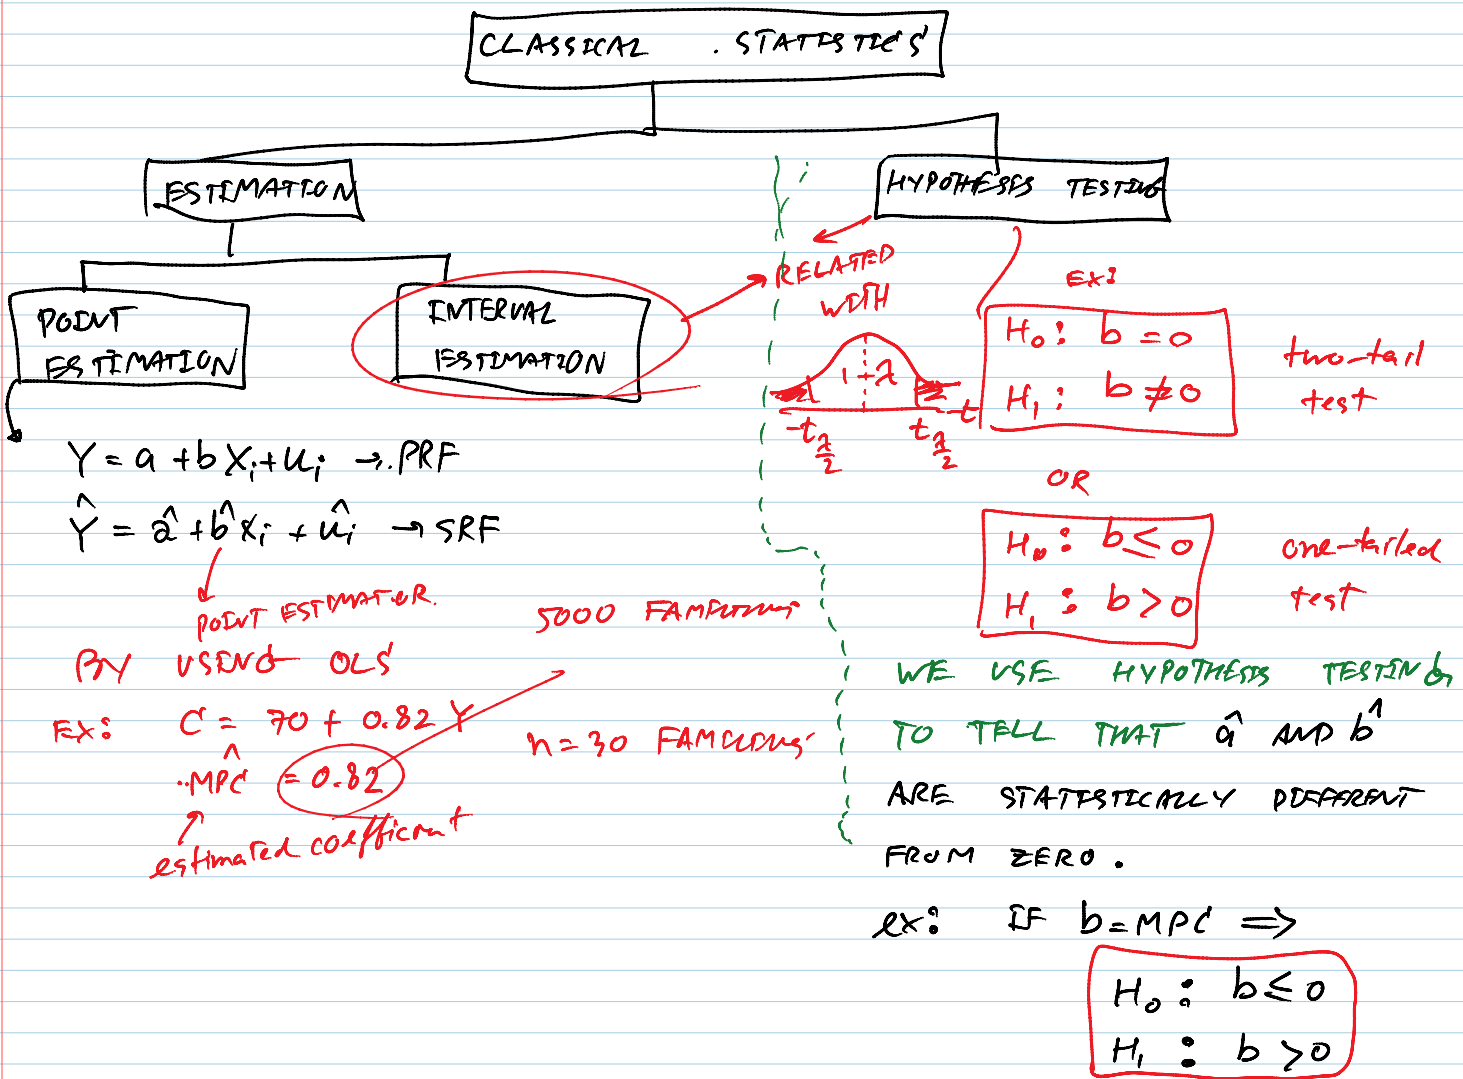 CLASSICAL . STATISTICS
ESTIMATION
HYPOTHESIS TESTING
POINT
ESTIMATION
INTERVAL
ESTIMATION
RELATED
WITH
1-λ
-t λ/2
t λ/2
t
EX:
H₀: b = 0
H₁: b ≠ 0
two-tail
test
OR
H₀: b ≤ 0
H₁: b > 0
one-tailed
test
Y = a + b Xᵢ + uᵢ → PRF
Ŷ = â + b̂ Xᵢ + ûᵢ → SRF
POINT ESTIMATOR.
BY USING OLS
5000
EX: C = 70 + 0.82 Y
n = 30
MPĈ = 0.82
estimated coefficient
WE USE HYPOTHESIS TESTING
TO TELL THAT â AND b̂
ARE STATISTICALLY DIFFERENT
FROM ZERO.
ex: IF b = MPC ⇒
H₀: b ≤ 0
H₁: b > 0